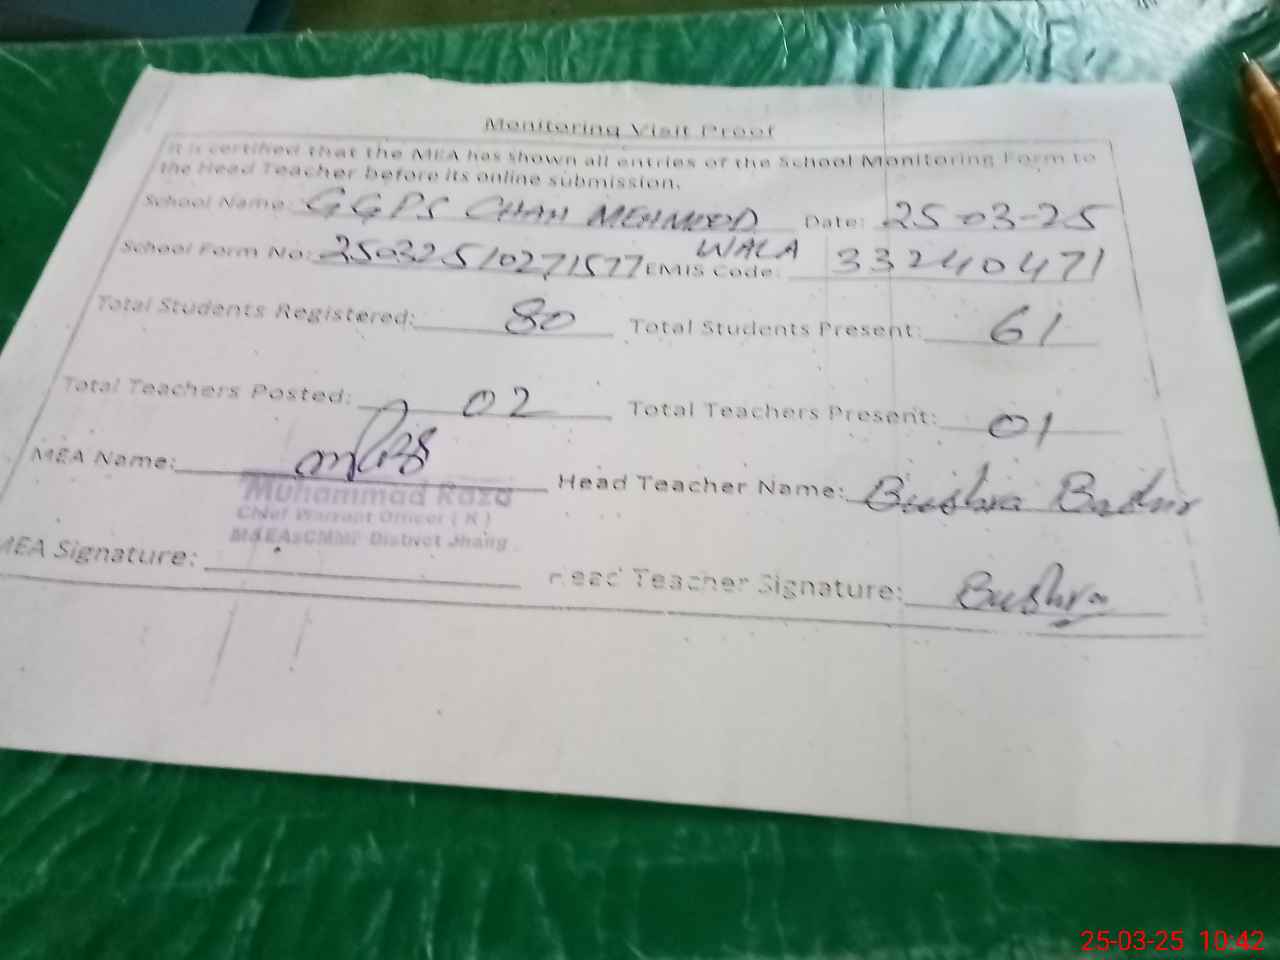 Monitoring Visit Proof
It is certified that the MEA has shown all entries of the School Monitoring Form to
the Head Teacher before its online submission.
School Name: GGPS CHAH MEHMOOD WALA Date: 25-03-25
School Form No: 25032510271577 EMIS Code: 33240471
Total Students Registered: 80 Total Students Present: 61
Total Teachers Posted: 02 Total Teachers Present: 01
MEA Name: Head Teacher Name: Bushra
Muhammad Raza
Chief Warrant Officer (R)
MEA District Jhang
MEA Signature: Head Teacher Signature: Bushra
25-03-25 10:42